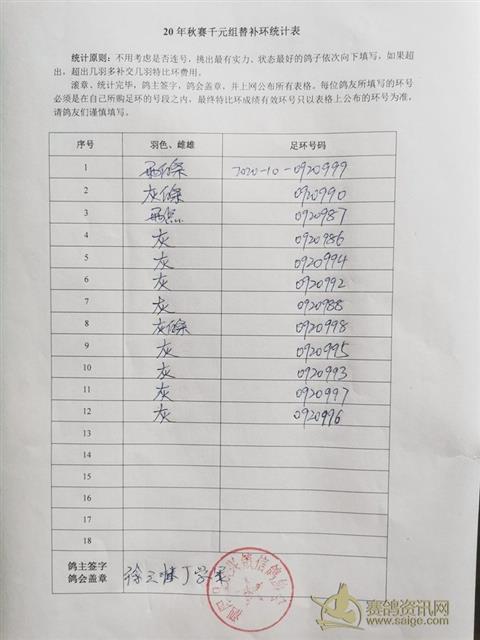 20 年秋赛千元组替补环统计表
统计原则：不用考虑是否连号，挑出最有实力、状态最好的鸽子依次向下填写，如果超
出，超出几羽多补交几羽特比环费用。
滚章、统计完毕，鸽主签字，鸽会盖章、并上网公布所有表格。每位鸽友所填写的环号
必须是在自己所购足环的号段之内，最终特比环成绩有效环号只以表格上公布的环号为准，
请鸽友们谨慎填写。
序号 羽色、雌雄 足环号码
1 2020-10-0920999
2 灰條 0920990
3 0920987
4 灰 0920986
5 灰 0920994
6 灰 0920992
7 灰 0920988
8 灰條 0920998
9 灰 0920995
10 灰 0920993
11 灰 0920997
12 灰 0920996
13
14
15
16
17
18
鸽主签字
鸽会盖章 徐 丁学
信鸽协会
赛鸽资讯网
www.saige.com